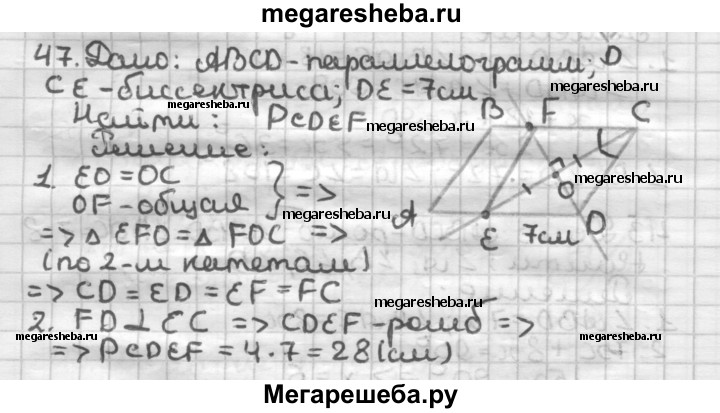 megaresheba.ru
47. Дано: ABCD - параллелограмм; D
CE - биссектриса; DE = 7см
megaresheba.ru
megaresheba.ru
Найти: PCDEF
megaresheba.ru
B F C
Решение:
1. EO = OC
OF - общая } =>
megaresheba.ru
O
megaresheba.ru
A E 7см D
=> Δ EFO = Δ FOC =>
(по 2-м катетам)
megaresheba.ru
=> CD = ED = EF = FC
megaresheba.ru
2. FD ⊥ EC => CDEF - ромб =>
=> PCDEF = 4 · 7 = 28 (см)
megaresheba.ru
Мегарешеба.ру